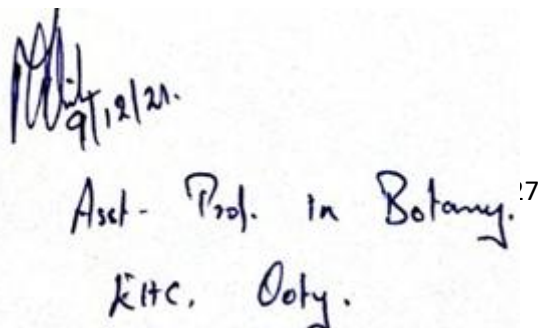 9/12/21.
Asst- Prof. in Botany.
27
Ooty.